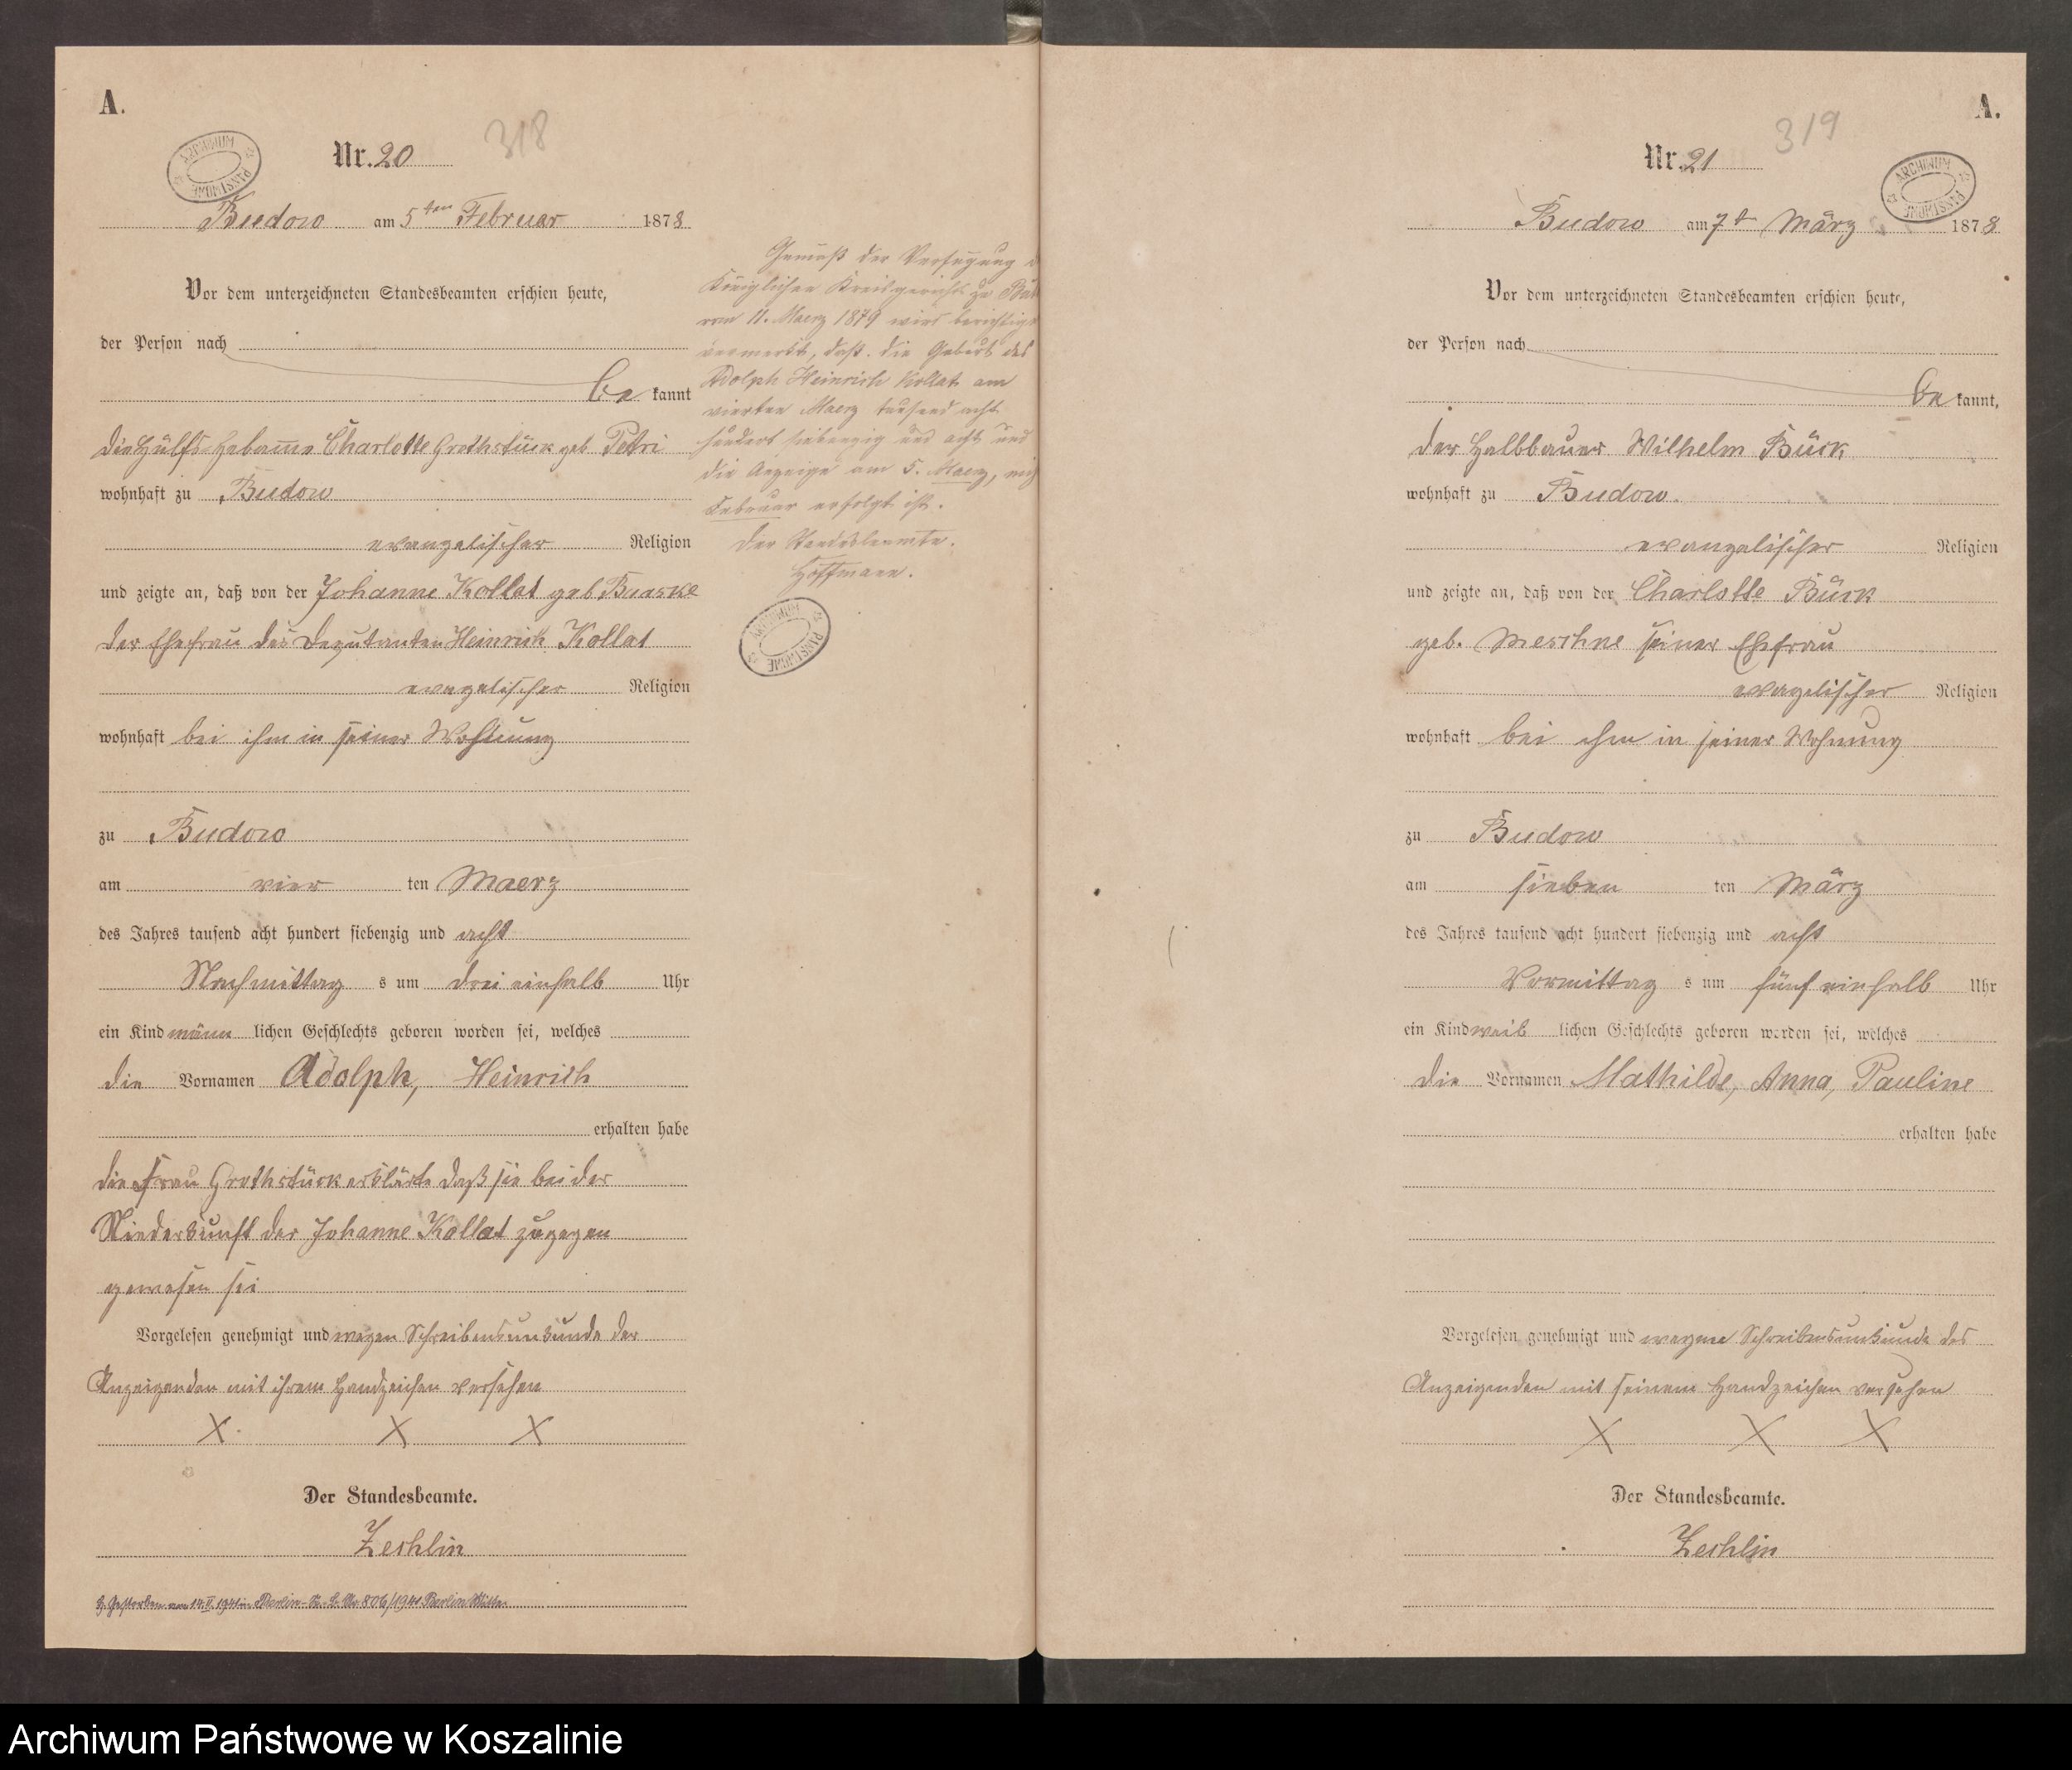 A.
Nr. 20
318
ARCHIWUM PAŃSTWOWE
Budow am 5ten Februar 1878
Vor dem unterzeichneten Standesbeamten erschien heute,
der Person nach
be kannt
die Hülfs-Hebamme Charlotte Grothstück geb Petri
wohnhaft zu Budow
evangelischer Religion
und zeigte an, daß von der Johanne Kollat geb Buaske
der Ehefrau des Deputanten Heinrich Kollat
evagelischer Religion
wohnhaft bei ihm in seiner Wohnung
zu Budow
am vier ten Maerz
des Jahres tausend acht hundert siebenzig und acht
Nachmittag s um drei einhalb Uhr
ein Kind männ lichen Geschlechts geboren worden sei, welches
die Vornamen Adolph, Heinrich
erhalten habe
die Frau Grothstück erklärte daß sie bei der
Niederkunft der Johanne Kollat zugegen
gewesen sei
Vorgelesen genehmigt und wegen Schreibensunkunde der
Anzeigenden mit ihrem Handzeichen versehen
X X X
Der Standesbeamte.
Zechlin
Gestorben am 14.II.1941 in Berlin- St. A. Nr 806/1941 Berlin Mitte
Gemäß der Verfügung d
Königlichen Kreisgerichts zu
vom 11. Maerz 1879 wird berichtigt
vermerkt, daß die Geburt des
Adolph Heinrich Kollat am
vierten Maerz tausend acht
hundert siebenzig und acht und
die Anzeige am 5. Maerz, nich
Februar erfolgt ist.
Der Standesbeamte.
Hoffmann.
ARCHIWUM PAŃSTWOWE
A.
Nr. 21
319
ARCHIWUM PAŃSTWOWE
Budow am 7t März 1878
Vor dem unterzeichneten Standesbeamten erschien heute,
der Person nach
be kannt,
der Halbbauer Wilhelm Bück
wohnhaft zu Budow.
evangelischer Religion
und zeigte an, daß von der Charlotte Bück
geb. Meschne seiner Ehefrau
evagelischer Religion
wohnhaft bei ihm in seiner Wohnung
zu Budow
am sieben ten März
des Jahres tausend acht hundert siebenzig und acht
Vormittag s um fünf einhalb Uhr
ein Kind weib lichen Geschlechts geboren worden sei, welches
die Vornamen Mathilde, Anna, Pauline
erhalten habe
Vorgelesen genehmigt und wegen Schreibensunkunde des
Anzeigenden mit seinem Handzeichen versehen
X X X
Der Standesbeamte.
Zechlin
Archiwum Państwowe w Koszalinie